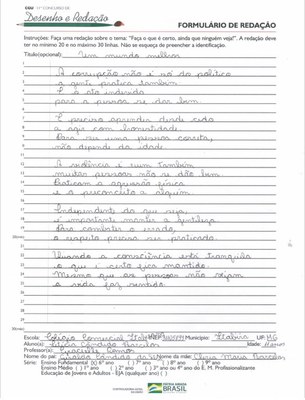 CGU 11º CONCURSO DE
Desenho e Redação
FORMULÁRIO DE REDAÇÃO
Instruções: Faça uma redação sobre o tema: "Faça o que é certo, ainda que ninguém veja!". A redação deve
ter no mínimo 20 e no máximo 30 linhas. Não se esqueça de preencher a identificação.
Título(opcional) Um mundo melhor
A corrupção não é só do político
a gente pratica também
É o ato indevido
para a pessoa se dar bem.
É preciso aprender desde cedo
a agir com honestidade
Para ser uma pessoa correta,
não depende da idade.
A violência é ruim também
muitas pessoas não se dão bem
Praticam a agressão física
e o preconceito a alguém.
Independente do que seja,
é importante manter a gentileza
Para combater o errado,
o respeito precisa ser praticado.
Quando a consciência está tranquila
o que é certo fica mantido.
Mesmo que as pessoas não vejam
a vida faz sentido.
Escola: Colégio Comercial Município: Itabira UF: MG
Aluno(a): Letícia Cândido Barcelos Idade:
Professor(a): Gracielle
Nome do pai: Cândido da Nome da mãe: Maria Barcelos
Série: Ensino Fundamental: 6º ano ( ) 7º ano ( ) 8º ano ( ) 9º ano
Ensino Médio ( ) 1º ano ( ) 2º ano ( ) 3º ano ou 4º ano do E. M. Profissionalizante
Educação de Jovens e Adultos - EJA (qualquer ano) ( )
PÁTRIA AMADA
BRASIL